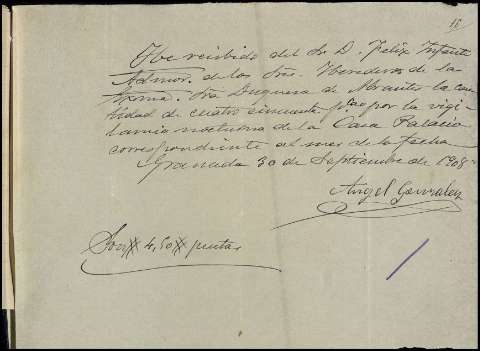 15
He recibido del Sr. D. Felix Infante
Admor. de los Sres. Herederos de la
Excma. Sra Duquesa de Abrantes la can
tidad de cuatro cincuenta ptas por la vigi
lancia nocturna de la Casa Palacio
correspondiente al mes de la fecha
Granada 30 de Septiembre de 1908
Angel Gonzalez
Son 4,50 pesetas